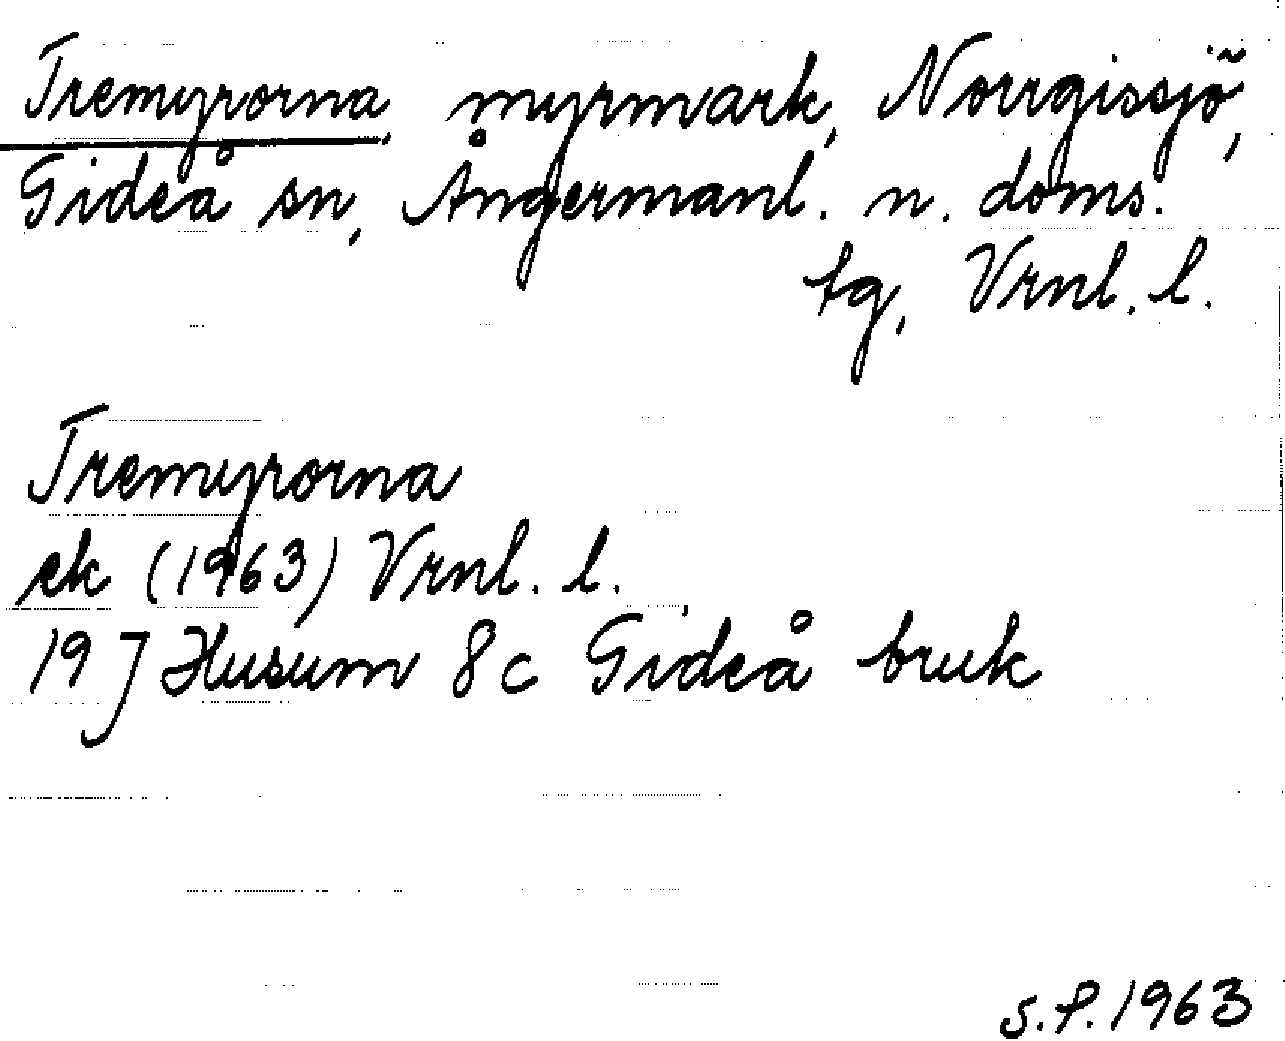 Tremyrorna, myrmark, Norrgissjö,
Gideå sn, Ångermanl. n. doms.
tg, Vrnl. l.
Tremyrorna
ek (1963) Vrnl. l.
19 J Husum 8c Gideå bruk
S.P. 1963